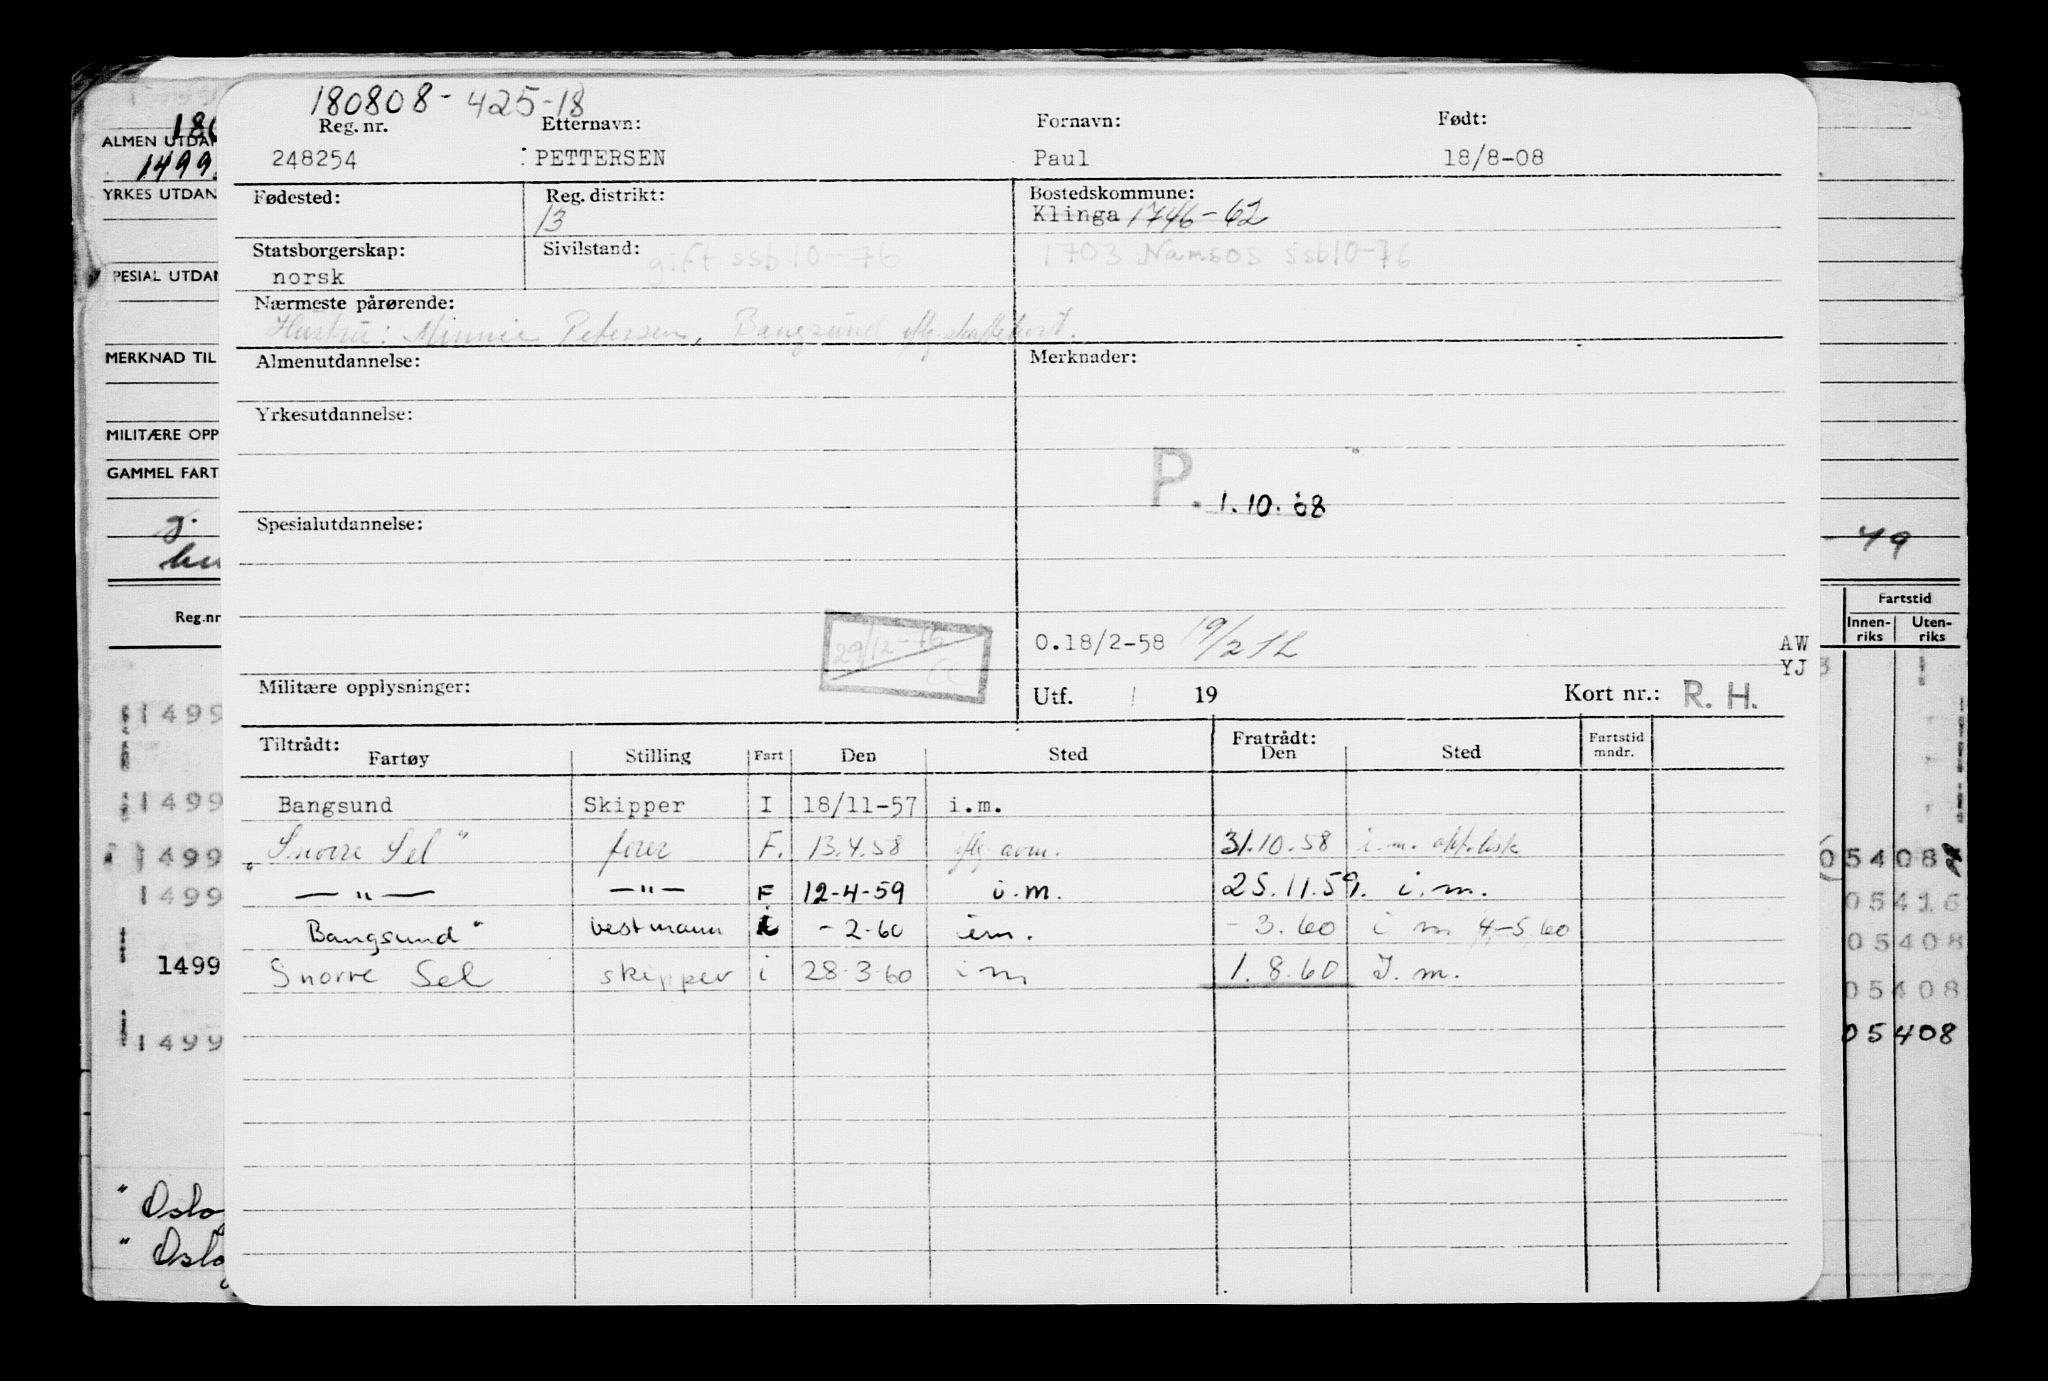 180808-425-18
Reg. nr. Etternavn: Fornavn: Født:
248254 PETTERSEN Paul 18/8-08
Fødested: Reg. distrikt: Bostedskommune:
13 Klinga 1746-62
Statsborgerskap: Sivilstand: gift ssb 10-76 1703 Namsos ssb 10-76
norsk
Nærmeste pårørende:
Hustru: Minnie Petersen, Bangsund iflg.
Almenutdannelse: Merknader:
Yrkesutdannelse:
P. 1.10.68
Spesialutdannelse:
29/12-76
O.18/2-58 19/2 AW
YJ
Militære opplysninger: Utf. / 19 Kort nr.: R. H.
Tiltrådt: Fratrådt:
Fartøy Stilling Fart Den Sted Den Sted Fartstid mndr.
Bangsund Skipper I 18/11-57 i.m.
"Snorre Sel" fører F. 13.4.58 iflg. avm. 31.10.58 i.m. opp.lisk
— " — — " — F 12-4-59 i.m. 25.11.59. i.m.
Bangsund" bestmann i - 2-60 i.m. - 3.60 i m 4-5.60
Snorre Sel skipper i 28-3-60 i m 1. 8.60 I. m.
ALMEN UTDAN
1499
YRKES UTDAN
PESIAL UTDAN
MERKNAD TIL
MILITÆRE OPP
GAMMEL FART
g.
- 49
Reg.nr
Fartstid
Innenriks Utenriks
1499
1499
1499 05408
1499 05416
05408
1499 05408
1499 05408
" Oslo
" Oslo